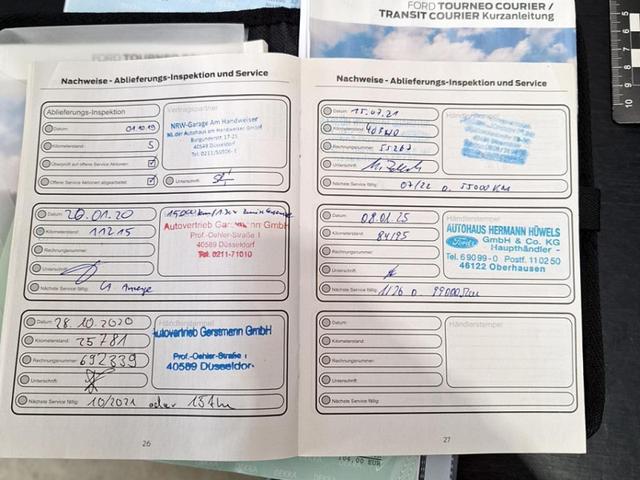 FORD TOURNEO COURIER /
TRANSIT COURIER Kurzanleitung
FORD TOURNEO
Nachweise - Ablieferungs-Inspektion und Service
Ablieferungs-Inspektion
Vertragspartner
Datum: 01.10.19
Kilometerstand: 5
Überprüft auf offene Service Aktionen:
Offene Service Aktionen abgearbeitet:
Unterschrift:
NRW-Garage Am Handweiser
NL der Autohaus am Handweiser GmbH
40549 Düsseldorf
Datum: 20.01.20
Kilometerstand: 11215
Rechnungsnummer:
Unterschrift:
Nächste Service fällig:
Autovertrieb Gerstmann GmbH
Prof.-Oehler-Straße 1
40589 Düsseldorf
Tel. 0211-71010
Datum: 28.10.2020
Kilometerstand: 25781
Rechnungsnummer: 692339
Unterschrift:
Nächste Service fällig: 10/2021 oder
Händlerstempel
Autovertrieb Gerstmann GmbH
Prof.-Oehler-Straße 1
40589 Düsseldorf
26
Nachweise - Ablieferungs-Inspektion und Service
Datum: 15.07.21
Kilometerstand:
Rechnungsnummer: 55267
Unterschrift:
Nächste Service fällig: 07/22 o. 55000 KM
Datum: 08.01.25
Kilometerstand: 84195
Rechnungsnummer:
Unterschrift:
Nächste Service fällig: 1/26 o. 99000 km
AUTOHAUS HERMANN HÜWELS
Ford
GmbH & Co. KG
- Haupthändler -
Tel. 6 90 99-0 Postf. 11 02 50
46122 Oberhausen
Datum:
Kilometerstand:
Rechnungsnummer:
Unterschrift:
Nächste Service fällig:
Händlerstempel
27
DEKRA
104,00 EUR
5
6
7
8
9
10